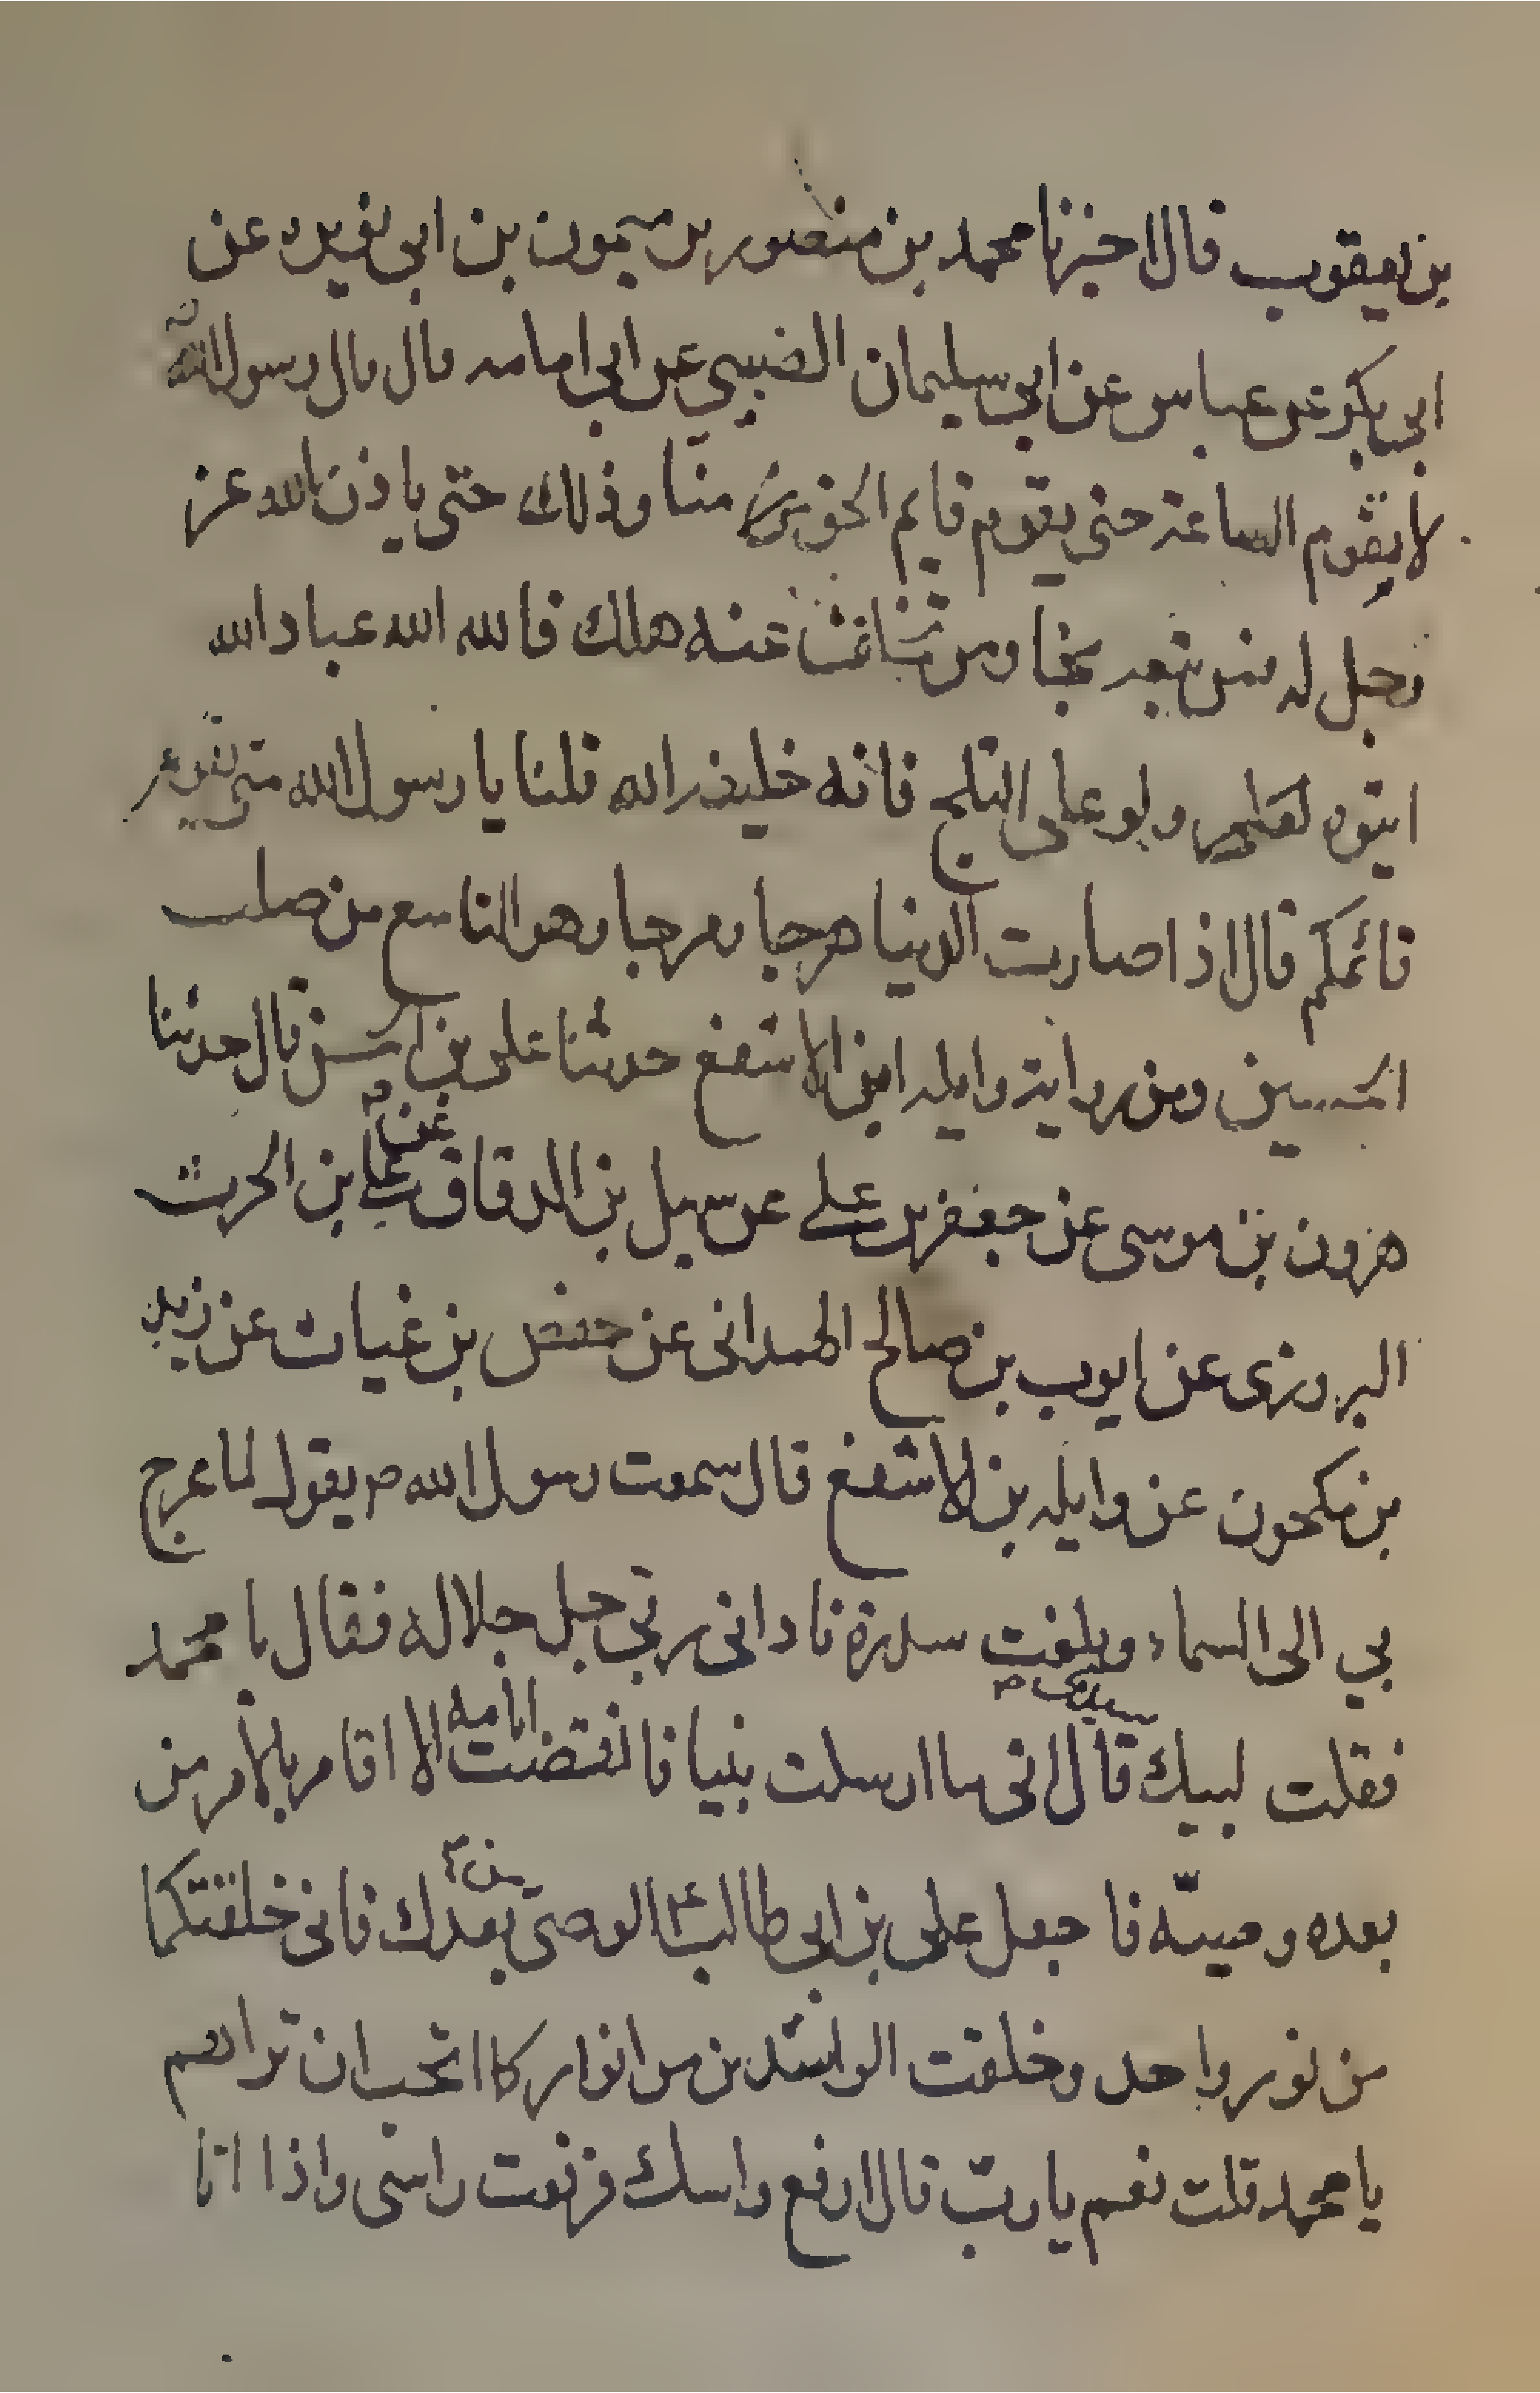 بن يعقوب قال اخبرنا محمد بن منصور بن ميمون بن ابى نويره عن
ابى بكر عن عباس عن ابى سليمان الضبيى عن ابى امامه قال قال رسول الله
لا يقوم الساعة حتى يقوم قايم الحق منا وذلك حتى ياذن الله عز
وجل له فمن تبعه نجا ومن عنه هلك فالله الله عباد الله
ايتوه ولو على الثلج فانه خليفة الله قلنا يا رسول الله متى يقوم
قائمكم قال اذا صارت الدنيا هرجا ومرجا وهو التاسع من صلب
الحسين ومن رواية وايله ابن الاشفع حدثنا على بن الحسن قال حدثنا
هرون بن موسى عن جعفر بن على عن سهيل بن الدقاق عن على بن الحرث
البروزى عن ايوب بن صالح الهمدانى عن حفص بن غياث عن زيد
بن مكحون عن وايله بن الاشفع قال سمعت رسول الله ص يقول لما عرج
بي الى السماء وبلغت سدرة نادانى ربي جل جلاله فقال يا محمد
فقلت لبيك سيدى قال انى ما ارسلت نبيا فانقضت ايامه الا اقام بالامر من
بعده وصيّه فاجعل على بن ابى طالب الوصى من بعدك فانى خلقتكما
من نور واحد وخلقت الراشدين من انواركما اتحب ان تراهم
يا محمد قلت نعم يا ربّ قال ارفع راسك فرفعت راسى واذا انا